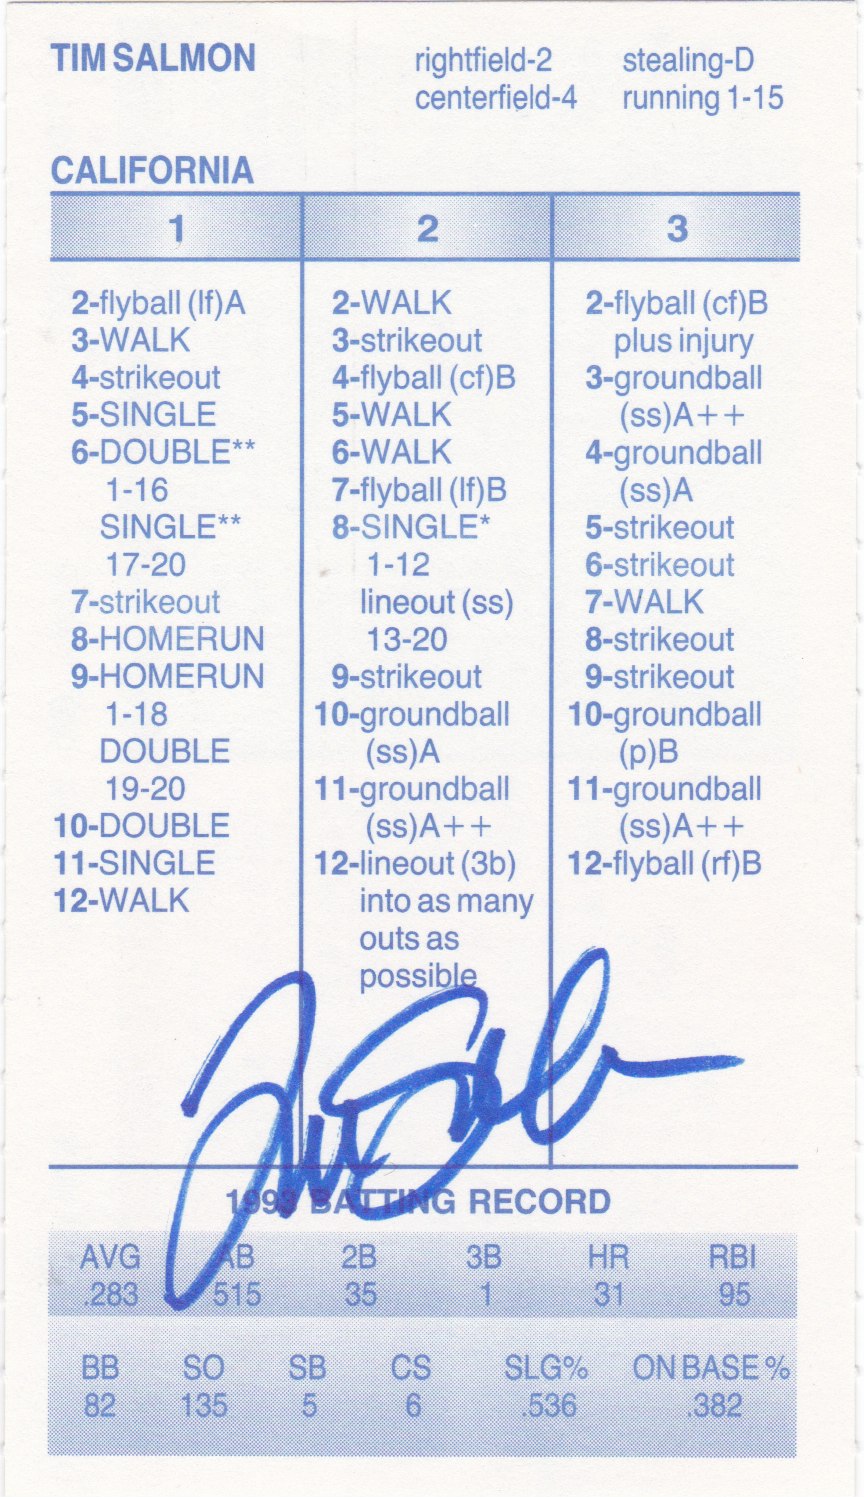 TIM SALMON rightfield-2 stealing-D
centerfield-4 running 1-15
CALIFORNIA
1
2-flyball (lf)A
3-WALK
4-strikeout
5-SINGLE
6-DOUBLE**
1-16
SINGLE**
17-20
7-strikeout
8-HOMERUN
9-HOMERUN
1-18
DOUBLE
19-20
10-DOUBLE
11-SINGLE
12-WALK
2
2-WALK
3-strikeout
4-flyball (cf)B
5-WALK
6-WALK
7-flyball (lf)B
8-SINGLE*
1-12
lineout (ss)
13-20
9-strikeout
10-groundball
(ss)A
11-groundball
(ss)A++
12-lineout (3b)
into as many
outs as
possible
3
2-flyball (cf)B
plus injury
3-groundball
(ss)A++
4-groundball
(ss)A
5-strikeout
6-strikeout
7-WALK
8-strikeout
9-strikeout
10-groundball
(p)B
11-groundball
(ss)A++
12-flyball (rf)B
Tim Salmon
1993 BATTING RECORD
AVG AB 2B 3B HR RBI
.283 515 35 1 31 95
BB SO SB CS SLG% ON BASE %
82 135 5 6 .536 .382